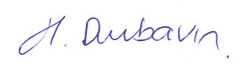 H. Dubavin.